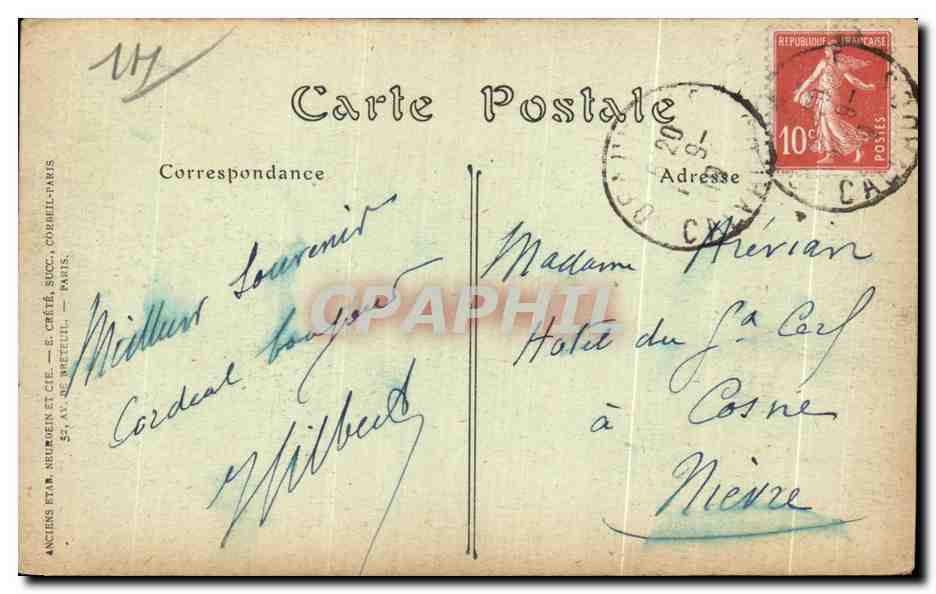 Carte Postale
Correspondance
Adresse
REPUBLIQUE FRANÇAISE
10c
POSTES
20
9-
CALVA
Meilleur Souvenir
Cordial bonjour
Gilbert
Madame Mérian
Hotel du Gd Cerf
à Cosne
Nièvre
ANCIENS ETAB. NEURDEIN ET CIE. — E. CRÉTÉ, SUCC., CORBEIL-PARIS
52, AV. DE BRETEUIL. — PARIS.
CPAPHIL